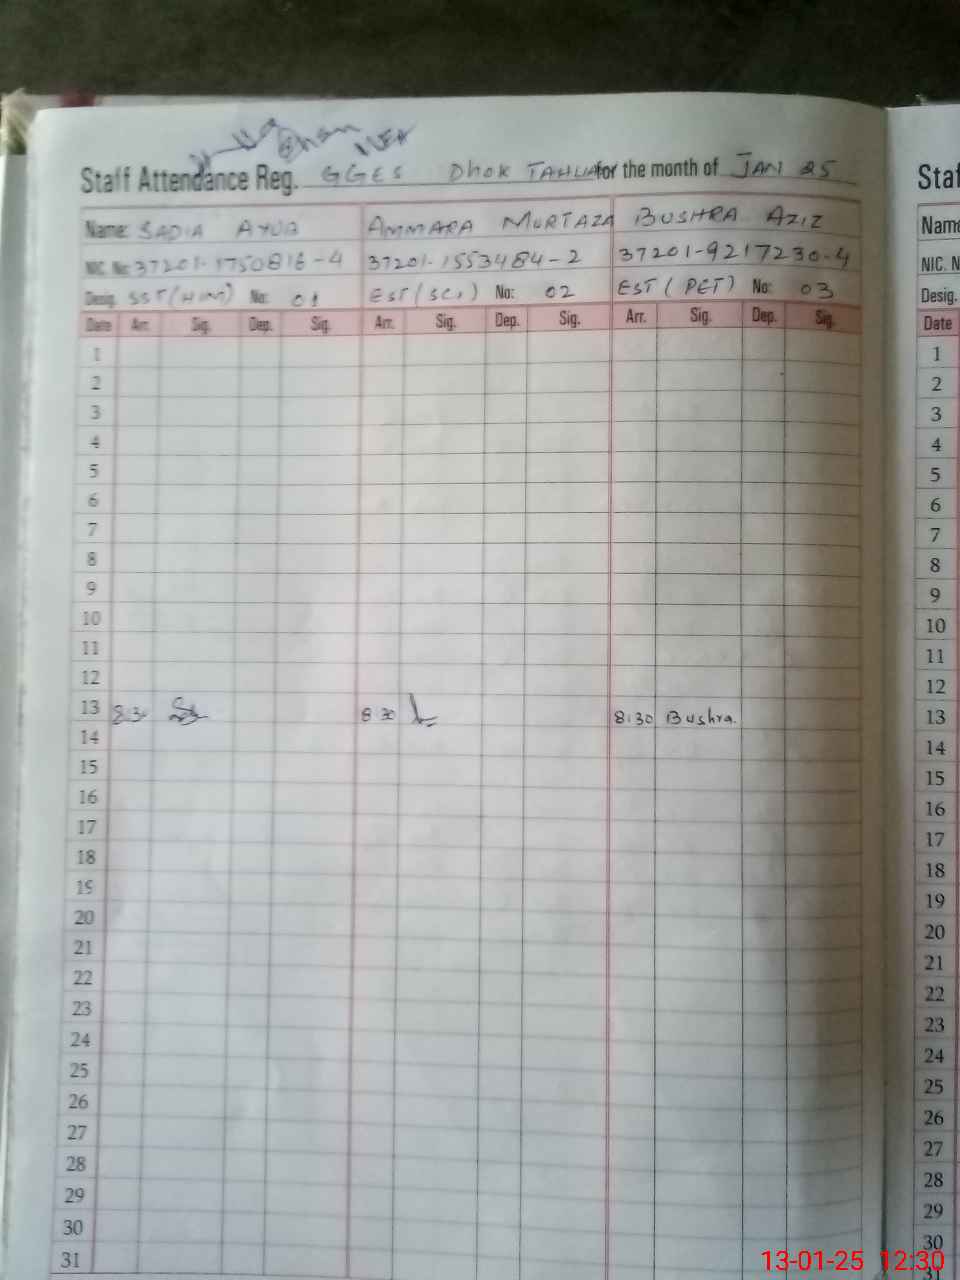 Staff Attendance Reg. GGES Dhok TAHLIA for the month of JAN 25
Name: SADIA AYUB AMMARA MURTAZA BUSHRA AZIZ
NIC. No: 37201-1750816-4 37201-1553484-2 37201-9217230-4
Desig. SST (HUM) No: 01 EST (SCI) No: 02 EST (PET) No: 03
Date Arr. Sig. Dep. Sig. Arr. Sig. Dep. Sig. Arr. Sig. Dep. Sig.
1
2
3
4
5
6
7
8
9
10
11
12
13 8:30 8:30 8:30 Bushra.
14
15
16
17
18
19
20
21
22
23
24
25
26
27
28
29
30
31
Name
NIC. N
Desig.
Date
1
2
3
4
5
6
7
8
9
10
11
12
13
14
15
16
17
18
19
20
21
22
23
24
25
26
27
28
29
30
31
13-01-25 12:30